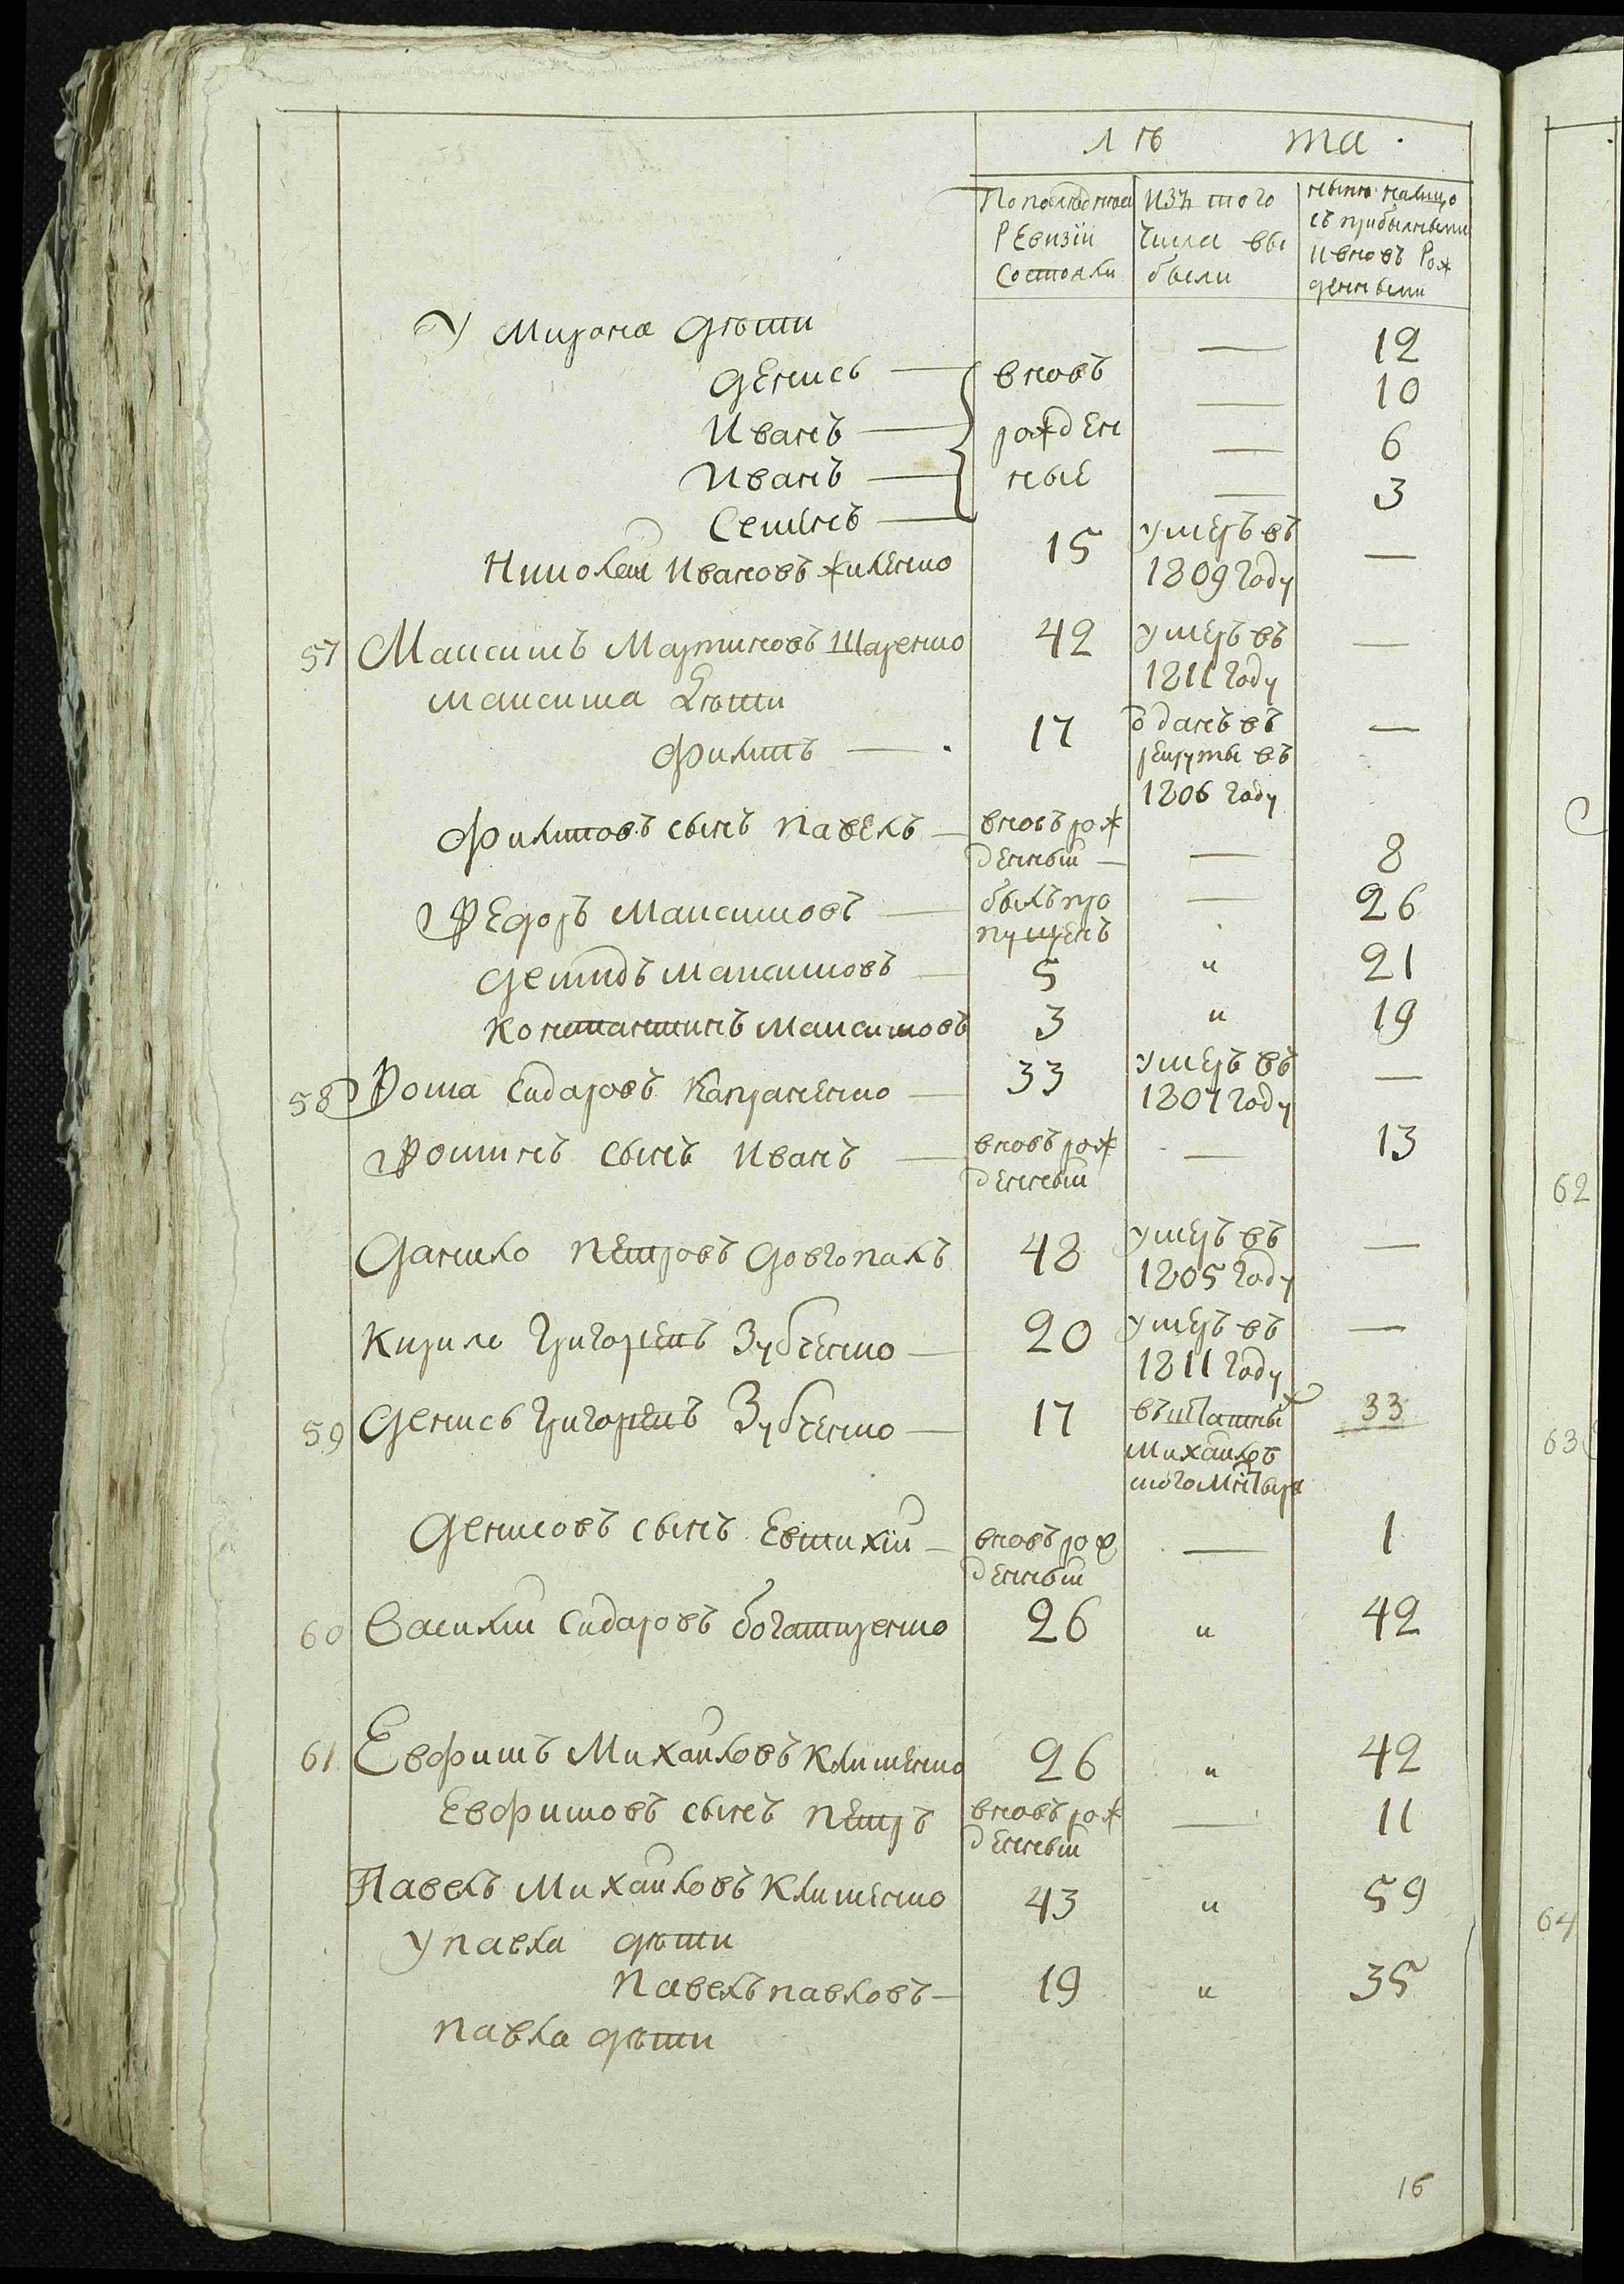 лѣ та.
По последней Изъ того ныне налицо
Ревизіи числа вы съ прибылными
Состояли были и вновъ Рож
денными
У Мирона дѣти
Денисъ — вновъ — 12
Иванъ — рожден — 10
Иванъ — ные — 6
Семенъ — — 3
Николай Ивановъ Жиленко 15 умеръ въ —
1809 году
57 Максимъ Мартиновъ Шаренко 42 умеръ въ —
1811 году
Максима дѣти
Филипъ — 17 ѿданъ въ —
рекруты въ
1806 году
Филиповъ сынъ Павелъ — вновъ рож
денный — — 8
Федоръ Максимовъ — былъ про — 26
пущенъ
Демидъ Максимовъ — 5 " 21
Константинъ Максимовъ 3 " 19
58 Фома Сидаровъ Капраненко — 33 умеръ въ —
1807 году
Фоминъ сынъ Иванъ — вновъ рож — 13
денный
Данило Петровъ Довгопалъ 48 умеръ въ —
1805 году
Кирило Григорьевъ Зубченко — 20 умеръ въ —
1811 году
59 Денисъ Григорьевъ Зубченко — 17 33
Михайлов
Денисовъ сынъ Евтихій — вновъ рож — 1
денный
60 Василий Сидаровъ Богатиренко 26 " 42
61 Евфимъ Михайловъ Клименко 26 " 42
Евфимовъ сынъ Петръ вновъ рож — 11
денный
Павелъ Михайловъ Клименко 43 " 59
У Павла дѣти
Павелъ Павловъ — 19 " 35
Павла дѣти
16
62
63
64